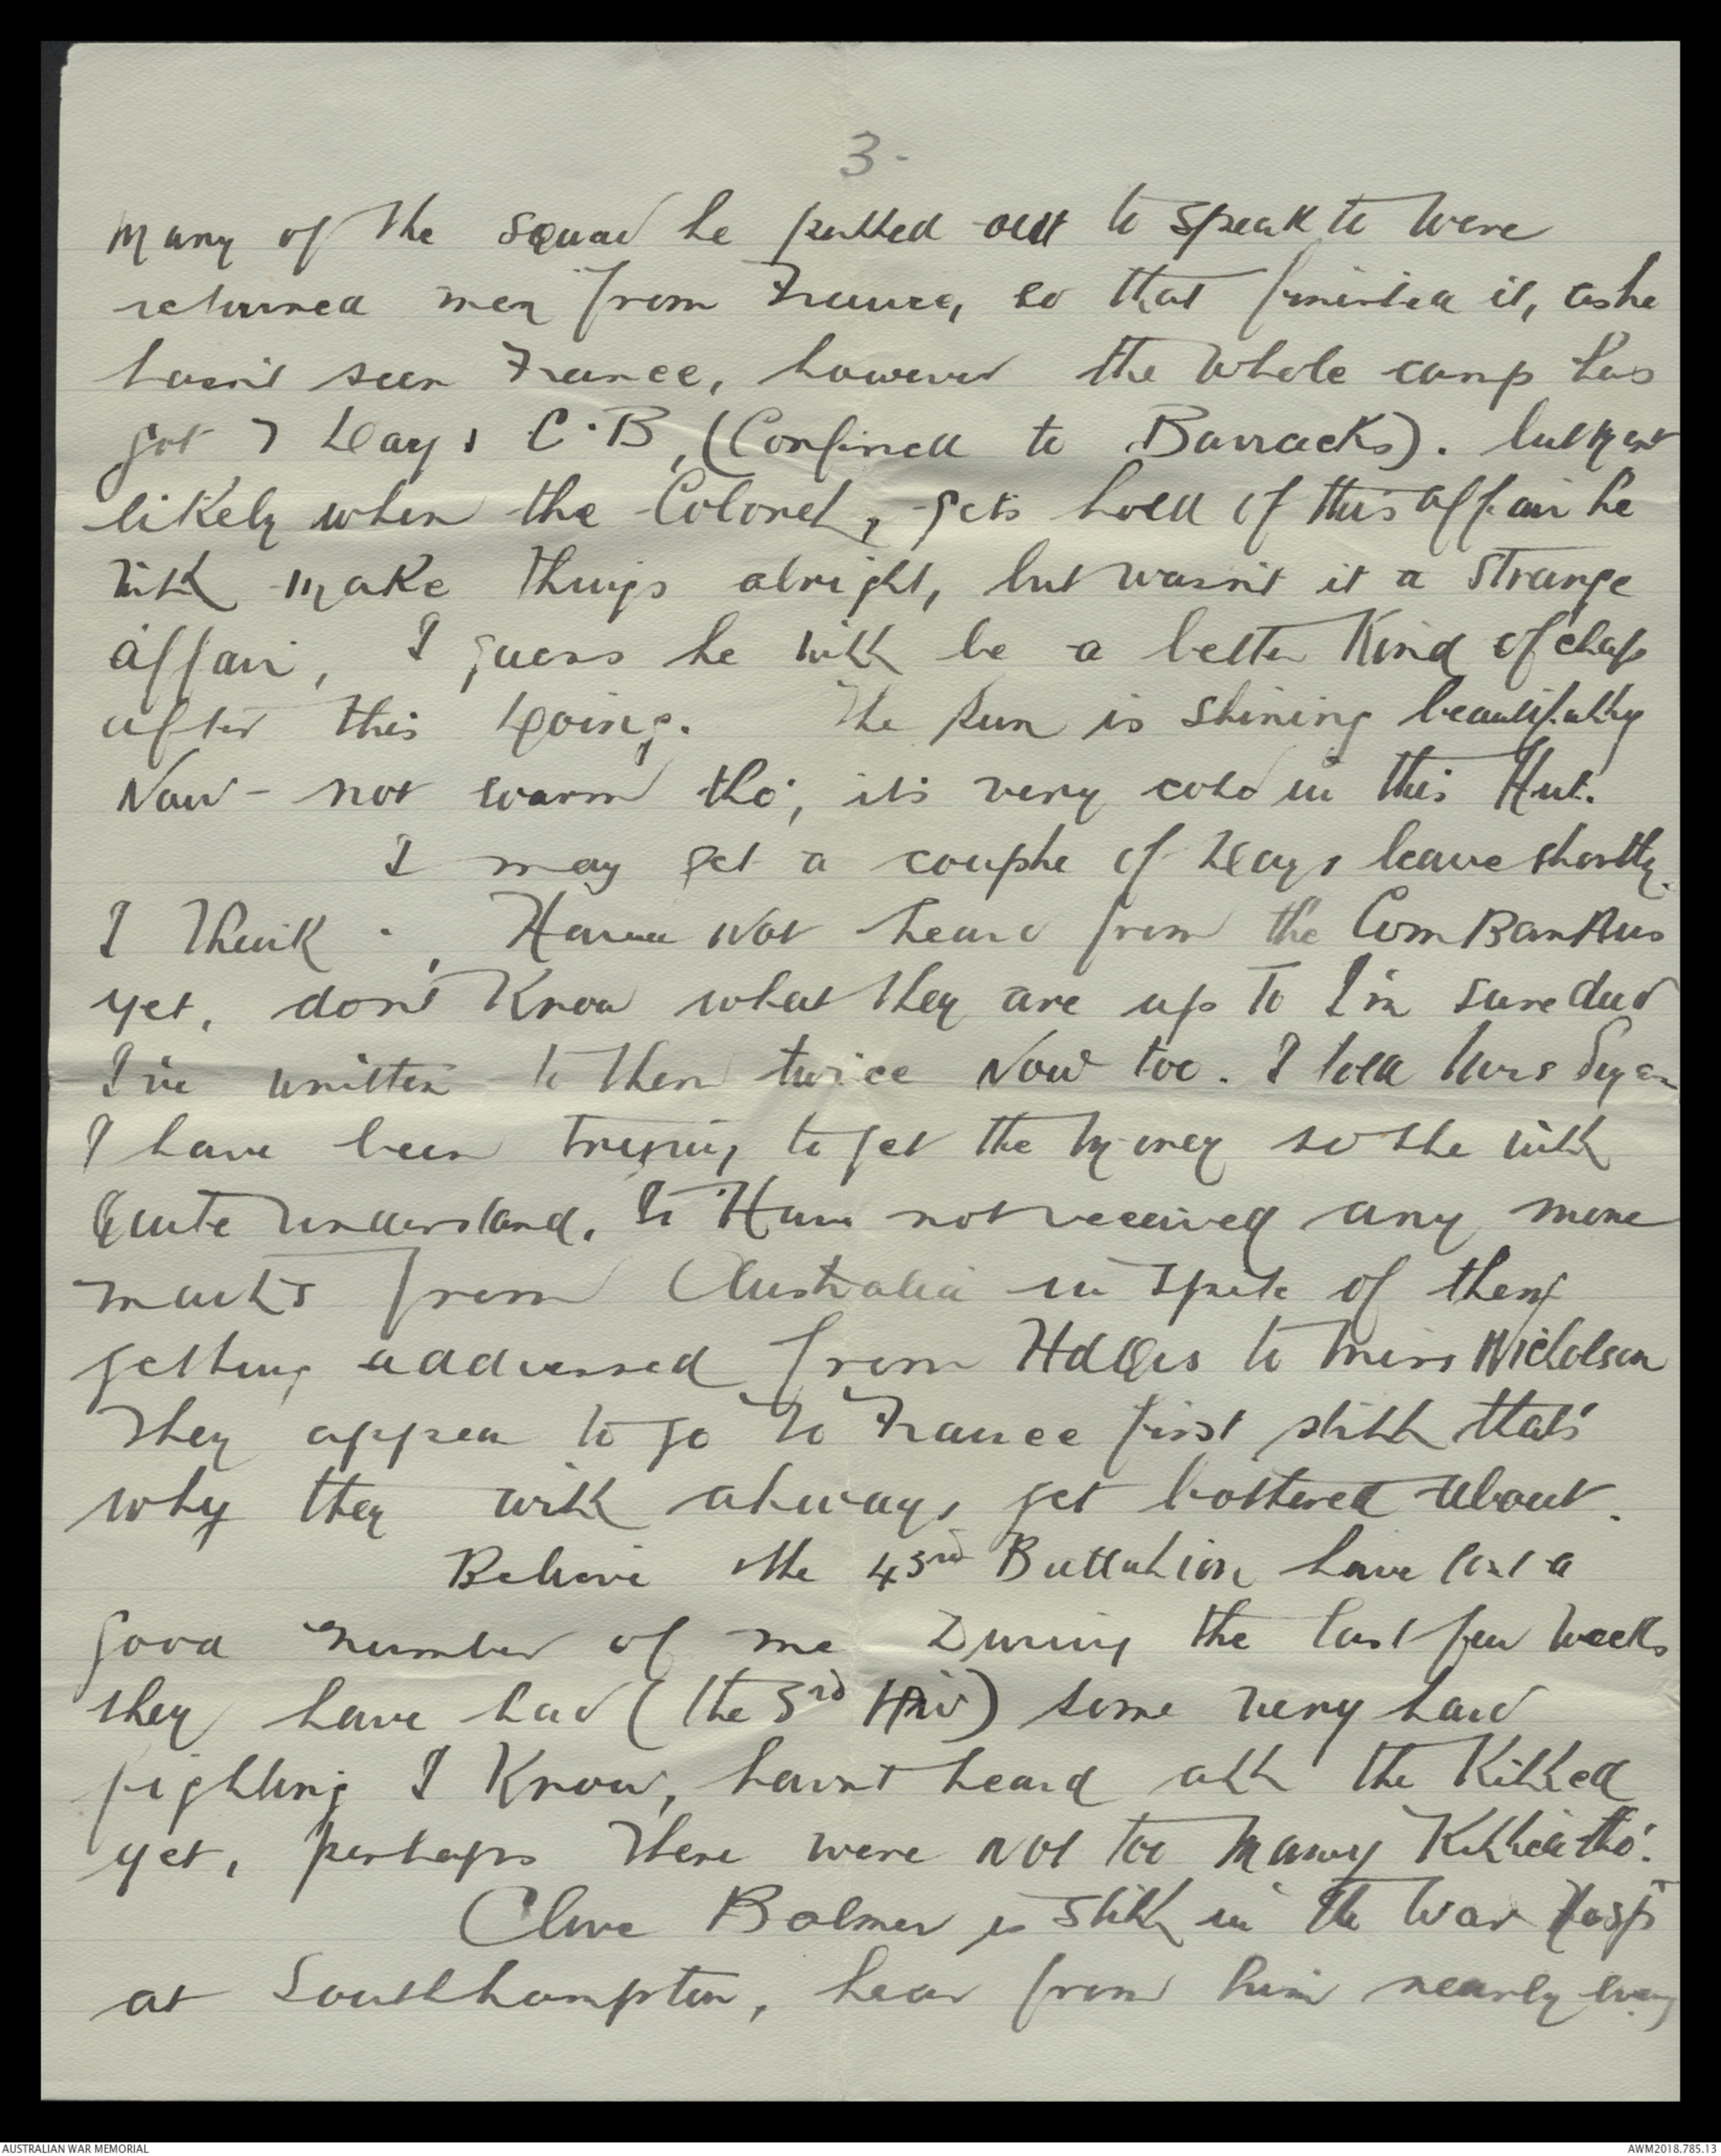 3-
Many of the squad he pulled out to speak to were
returned men from France, so that finished it, as he
hasn't seen France, however the whole camp has
got 7 Days C.B, (Confined to Barracks). but most
likely when the Colonel, gets hold of this affair he
will make things alright, but wasn't it a strange
affair, I guess he will be a better Kind of chap
after this Doing. The sun is shining beautifully
Now - not warm tho', it's very cold in this Hut.
I may get a couple of Days leave shortly.
I think. Have Not heard from the Com Bank
yet, don't Know what they are up to I'm sure
I've written to them twice Now too. I told Mrs
I have been trying to get the Money so she will
Quite understand. Have not received any more
mails from Australia in spite of them
getting addressed from HdQrs to Miss Nicholson
They appear to go to France first still that's
why they will always get bothered about.
Believe the 43rd Battalion have lost a
good number of me During the last few weeks
they have had (the 3rd Div) some very hard
fighting I Know, havnt heard all the Killed
yet, perhaps there were Not too Many Killed tho'.
Clive Bolmer is still in the War Hosp
at Southhampton, hear from him nearly every